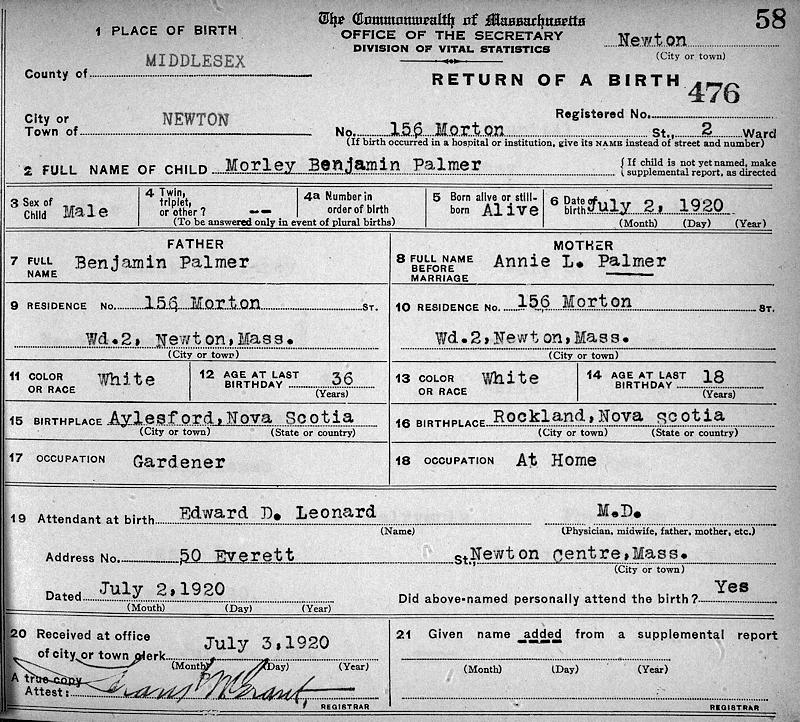 58
The Commonwealth of Massachusetts
OFFICE OF THE SECRETARY
DIVISION OF VITAL STATISTICS
1 PLACE OF BIRTH
County of MIDDLESEX
City or
Town of NEWTON
Newton
(City or town)
RETURN OF A BIRTH 476
Registered No.
No. 156 Morton St., 2 Ward
(If birth occurred in a hospital or institution, give its NAME instead of street and number)
2 FULL NAME OF CHILD Morley Benjamin Palmer { If child is not yet named, make
supplemental report, as directed
3 Sex of
Child Male
4 Twin,
triplet,
or other? --
4a Number in
order of birth
(To be answered only in event of plural births)
5 Born alive or still-
born Alive
6 Date of
birth July 2, 1920
(Month) (Day) (Year)
FATHER
7 FULL
NAME Benjamin Palmer
9 RESIDENCE No. 156 Morton ST.
Wd.2, Newton,Mass.
(City or town)
11 COLOR
OR RACE White
12 AGE AT LAST
BIRTHDAY 36
(Years)
15 BIRTHPLACE Aylesford,Nova Scotia
(City or town) (State or country)
17 OCCUPATION Gardener
MOTHER
8 FULL NAME
BEFORE
MARRIAGE Annie L. Palmer
10 RESIDENCE No. 156 Morton ST.
Wd.2,Newton,Mass.
(City or town)
13 COLOR
OR RACE White
14 AGE AT LAST
BIRTHDAY 18
(Years)
16 BIRTHPLACE Rockland,Nova Scotia
(City or town) (State or country)
18 OCCUPATION At Home
19 Attendant at birth Edward D. Leonard M.D.
(Name) (Physician, midwife, father, mother, etc.)
Address No. 50 Everett St., Newton Centre,Mass.
(City or town)
Dated July 2,1920
(Month) (Day) (Year)
Did above-named personally attend the birth? Yes
20 Received at office
of city or town clerk July 3,1920
(Month) (Day) (Year)
A true copy
Attest: Grant,
REGISTRAR
21 Given name added from a supplemental report
(Month) (Day) (Year)
REGISTRAR